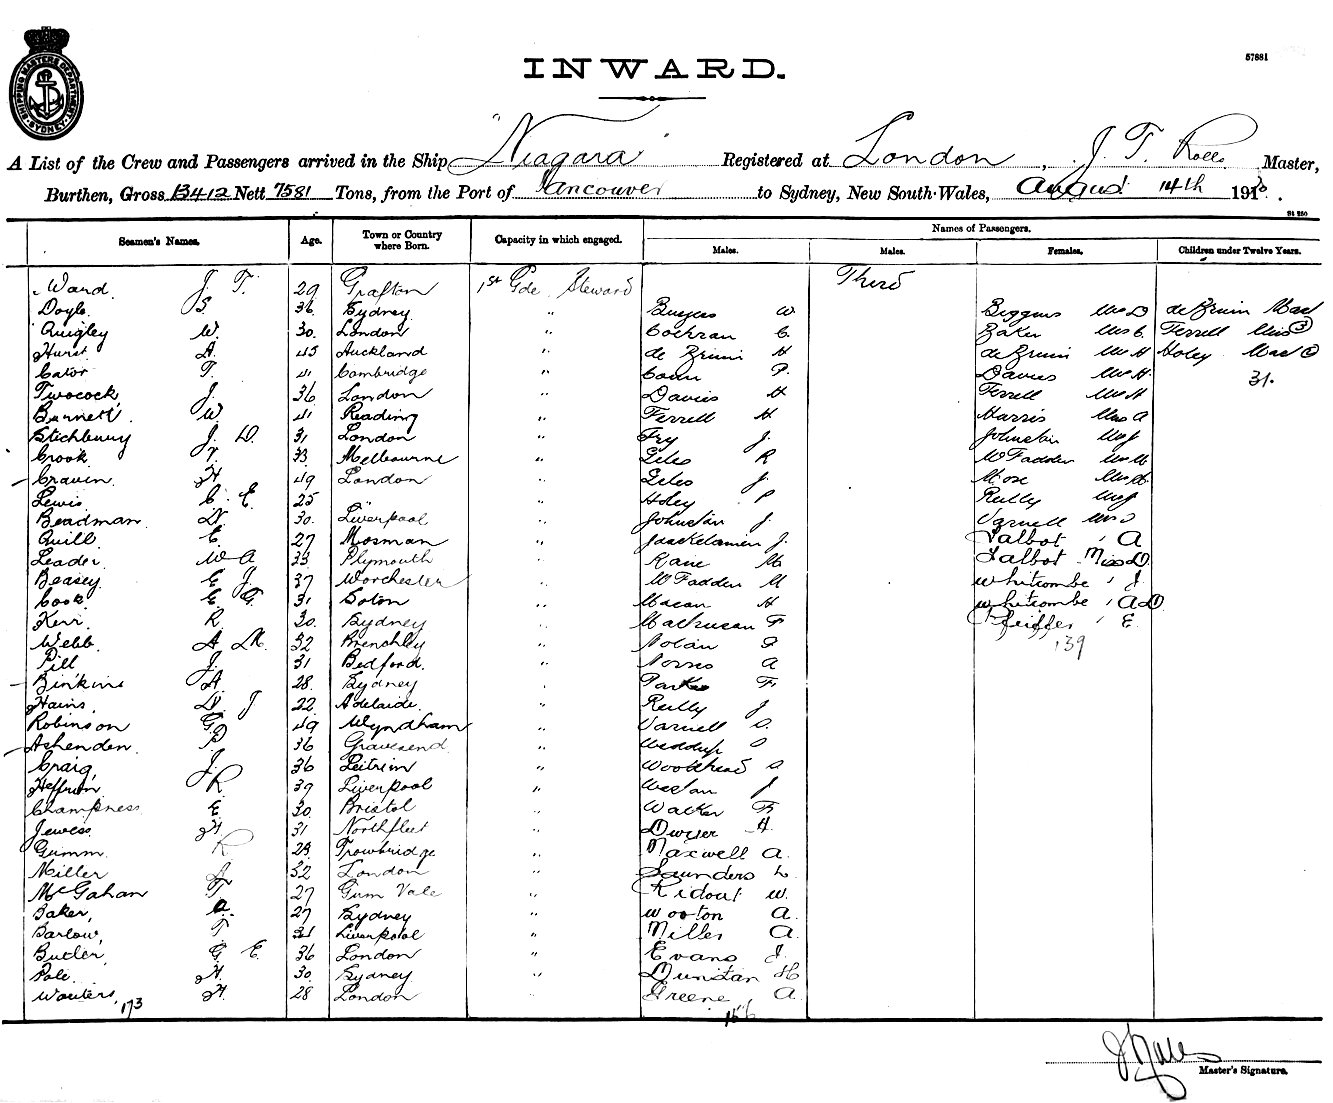 SHIPPING MASTERS DEPARTMENT SYDNEY
57881
INWARD.
A List of the Crew and Passengers arrived in the Ship "Niagara" Registered at London, J. T. Rolls Master,
Burthen, Gross 13412 Nett 7581 Tons, from the Port of Vancouver to Sydney, New South Wales, August 14th 191
Seamen's Names. Age. Town or Country where Born. Capacity in which engaged. Names of Passengers.
Males. Males. Females. Children under Twelve Years.
Ward. J. T. 29 Grafton 1st Gde Steward Third
Doyle. S. 36 Sydney " Burgess W. Biggins Mrs D de Bruin Mas
Quigley W. 30. London " Cochran C. Baker Mrs C. Ferrell Miss
Hurst A. 45 Auckland " de Bruin H de Bruin Mrs H Holey Mas
Cator T. 41 Cambridge " Conn P. Davies Mrs H. 31.
Twocock J. 36 London " Davies H Ferrell Mrs H
Burnett W 41 Reading " Ferrell H Harris Mrs A
Stichbury J. D. 31 London " Fry J. Johnston Mrs J
Crook. 33 Melbourne " Giles R McFadden Mrs M
Cravin. H 49 London " Giles J. Mose
Lewis C. E. 25 " " Holey P Reilly Mrs J
Beadman. D. 30. Liverpool " Johnston J. Varnell Mrs S
Quill E 27 Mosman " Jaaskelainen J. Talbot " A
Leader. W A 33 Plymouth " Kane M Talbot Miss D.
Beasey. E J. 37 Worchester " McFadden M Whitcombe " J.
Cook. E. G. 31 Soton " Macan H Whitcombe " A D.
Kerr. R. 30. Sydney " F Pfeiffer " E.
Webb. A M. 32 Brenchley " Nolan P 139
Pill J. 31 Bedford. " Norris A
Binkins A 28. Sydney " Parkes F
Hains. D. J 22 Adelaide. " Reilly J
Robinson G. 49 Wyndham " Varnell S.
Ashenden. P 36 Gravesend. " Weddup S
Craig, J. 36 Leitrim " Woodhead S
Heffron R 39 Liverpool " Weston J
Champness E. 30 Bristol " Walker F.
Jewess. H 31 Northfleet " Dwyer H.
Gumm. R 29 Trowbridge " Maxwell A.
Miller 32 London " Saunders L.
McGahan T. 27 Gum Vale " Ridout W.
Baker, A. 27 Sydney " Wooton A.
Barlow, T 31 Liverpool " Miller A.
Butler, G E. 36 London " Evans J.
Pole. H. 30 Sydney " Dunstan H
Wauters, H. 28 London " Greene A.
173 156
Master's Signature.